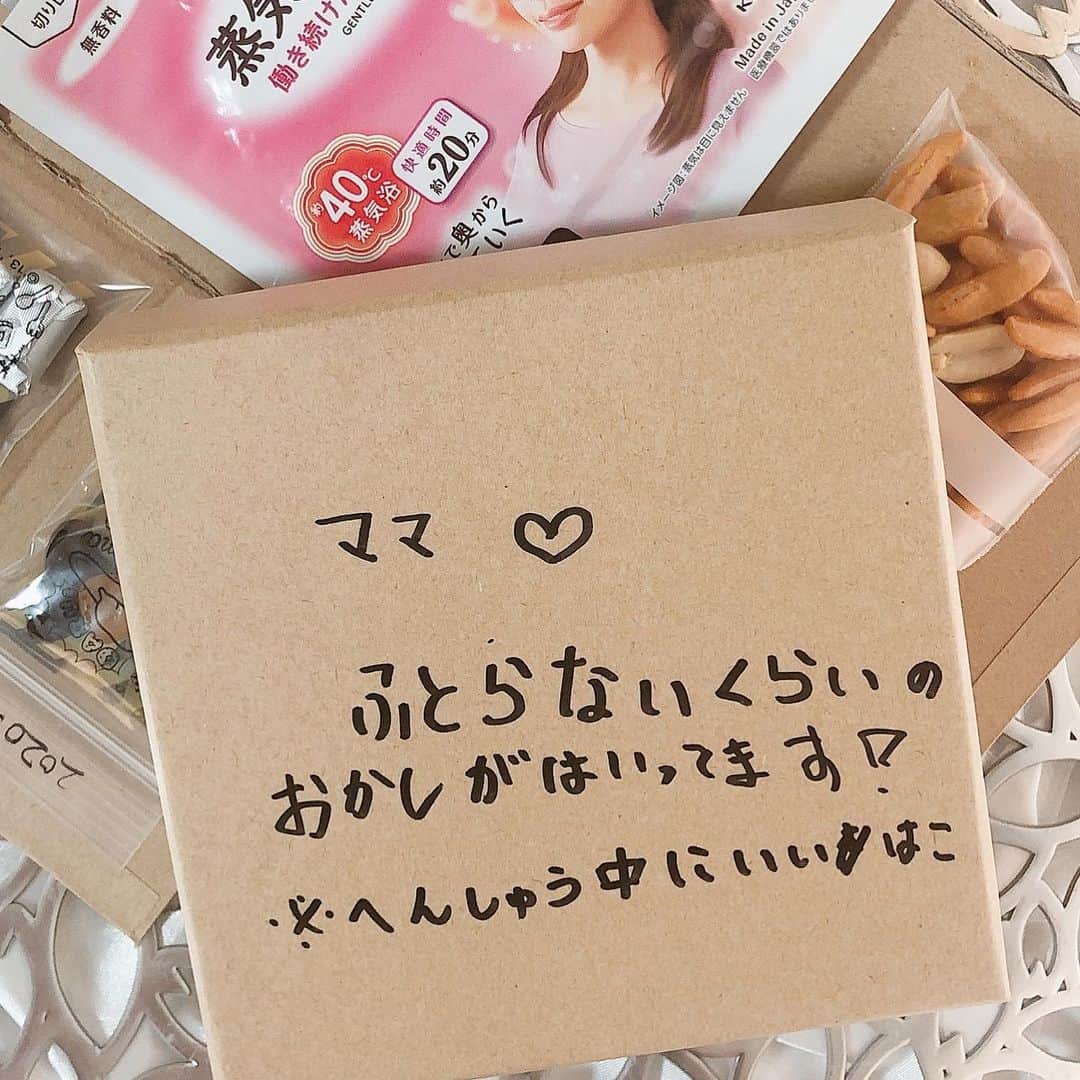 切り
無香料
蒸気
働き続け
GENTL
約40℃
蒸気浴
快適時間
約20分
で奥から
いく
Made in Ja
医療機器ではありませ
イメージ図:蒸気は目に見えません
ママ ♡
ふとらないくらいの
おかしがはいってます!
※へんしゅう中にいいはこ
2020